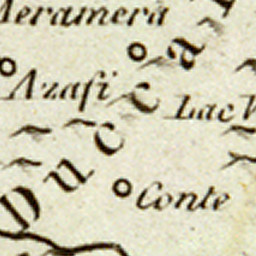 Meramera
Azafi
Lac
Conte
Ducca